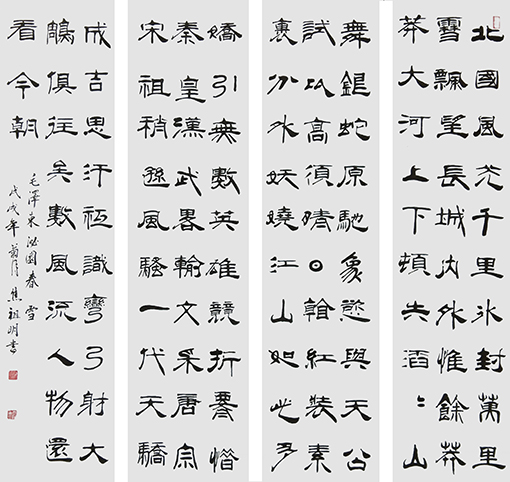 北國風光千里冰封萬里
雪飄望長城內外惟餘莽
莽大河上下頓失滔〻山
舞銀蛇原馳象欲與天公
試比高須晴日看紅裝素
裹分外妖嬈江山如此多
嬌引無數英雄競折腰惜
秦皇漢武畧輸文采唐宗
宋祖稍遜風騷一代天驕
成吉思汗衹識彎弓射大
鵰俱往矣數風流人物還
看今朝
毛澤東沁園春 雪
戊戌年菊月焦祖明書